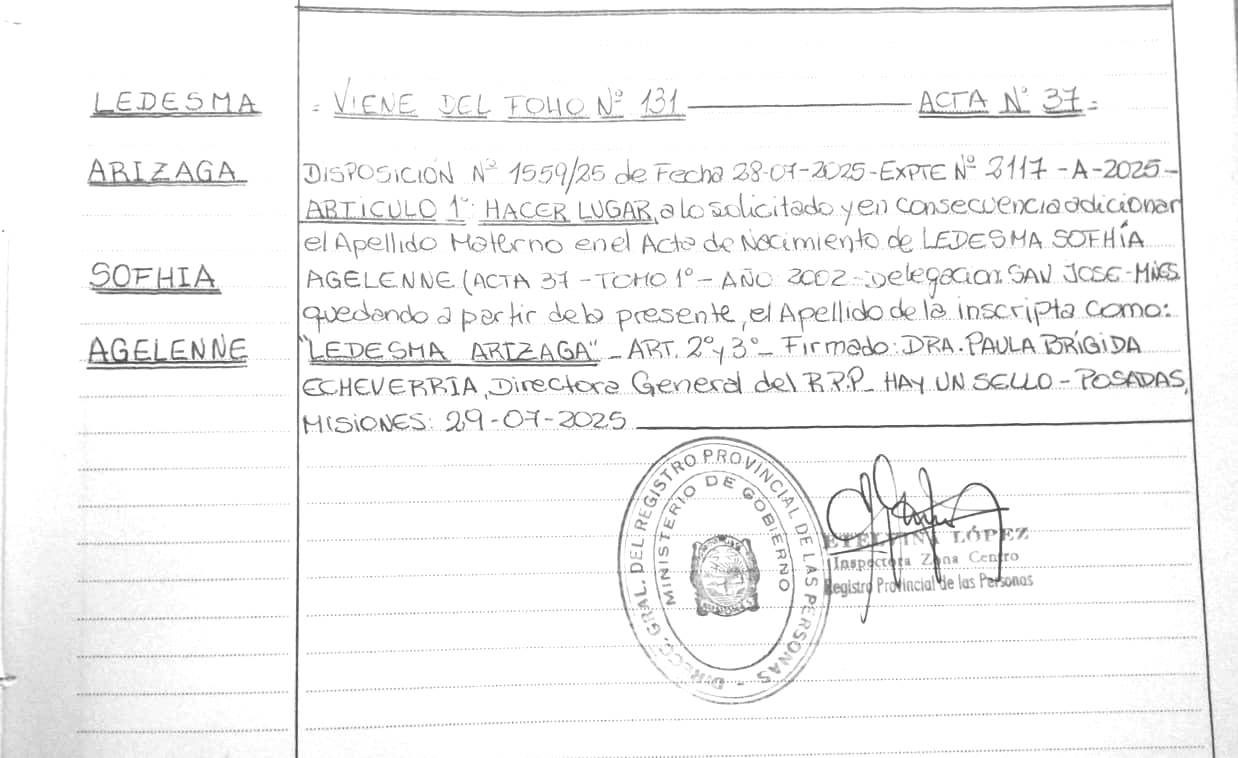 LEDESMA
= VIENE DEL FOLIO Nº 131 ACTA Nº 37 =
ARIZAGA
DISPOSICIÓN Nº 1559/25 de Fecha 28-07-2025-EXPTE Nº 2117 -A-2025-
ARTICULO 1º: HACER LUGAR, a lo solicitado y en consecuencia adicionar
el Apellido Materno en el Acta de Nacimiento de LEDESMA SOFHÍA
SOFHIA
AGELENNE (ACTA 37 - TOMO 1º - AÑO 2002 - Delegacion SAN JOSE-MNES
quedando a partir de la presente, el Apellido de la inscripta como:
AGELENNE
"LEDESMA ARIZAGA" - ART. 2º y 3º - Firmado: DRA. PAULA BRÍGIDA
ECHEVERRÍA, Directora General del R.P.P - HAY UN SELLO - POSADAS,
MISIONES: 29-07-2025
DIRECC. GRAL. DEL REGISTRO PROVINCIAL DE LAS PERSONAS -
MINISTERIO DE GOBIERNO
ETELVINA LÓPEZ
Inspectora Zona Centro
Registro Provincial de las Personas